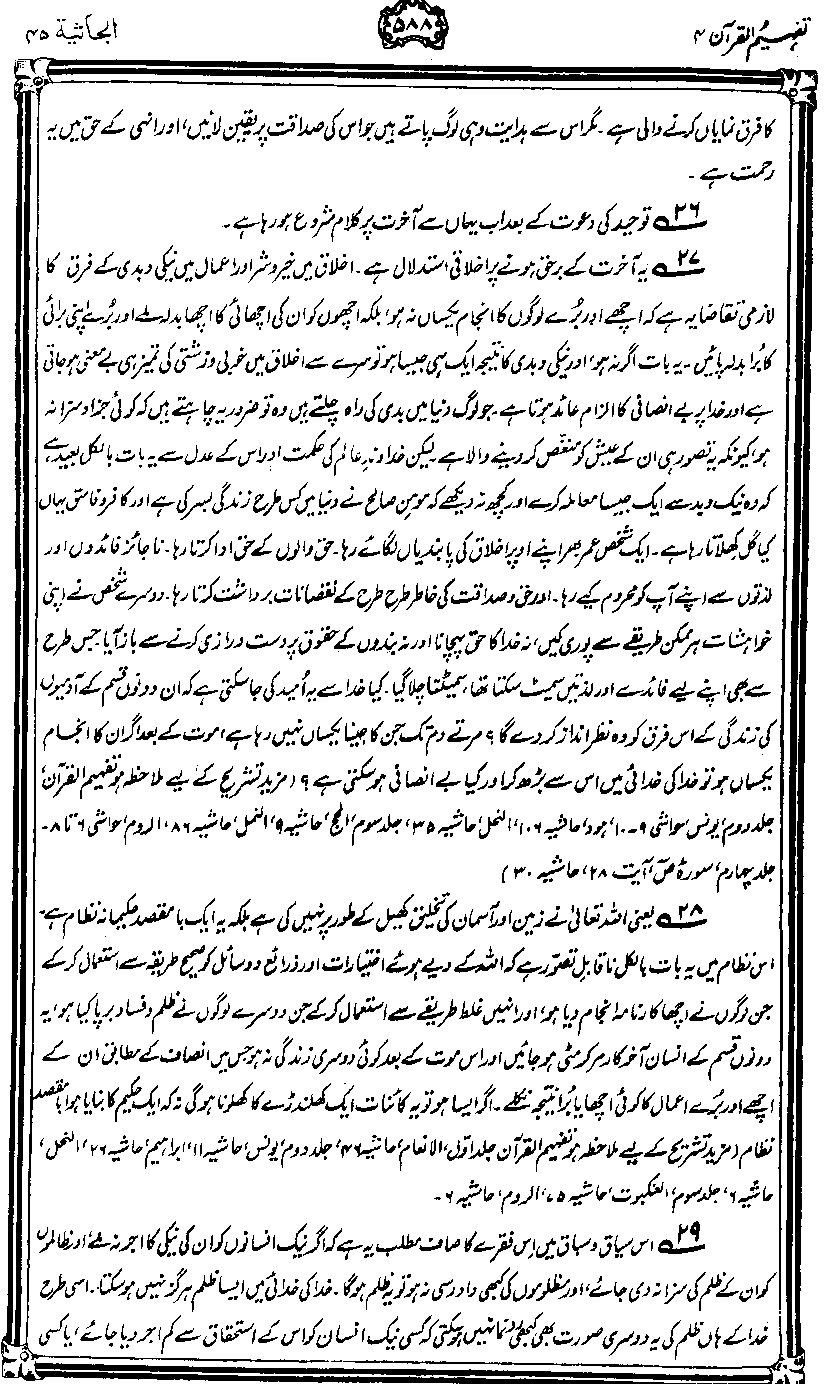 تفہیم القرآن ۴
۵۸۸
الجاثیۃ ۴۵
کا فرق نمایاں کرنے والی ہے۔ مگر اس سے ہدایت وہی لوگ پاتے ہیں جو اس کی صداقت پر یقین لائیں، اور انہی کے حق میں یہ
رحمت ہے۔
۲۶ توحید کی دعوت کے بعد اب یہاں سے آخرت پر کلام شروع ہو رہا ہے۔
۲۷ یہ آخرت کے برحق ہونے پر اخلاقی استدلال ہے۔ اخلاق میں خیر و شر اور اعمال میں نیکی و بدی کے فرق کا
لازمی تقاضا یہ ہے کہ اچھے اور بُرے لوگوں کا انجام یکساں نہ ہو، بلکہ اچھوں کو ان کی اچھائی کا اچھا بدلہ ملے اور بُرے اپنی برائی
کا بُرا بدلہ پائیں۔ یہ بات اگر نہ ہو، اور نیکی و بدی کا نتیجہ ایک ہی جیسا ہو تو سرے سے اخلاق میں خوبی و زشتی کی تمیز ہی بے معنی ہو جاتی
ہے اور خدا پر بے انصافی کا الزام عائد ہوتا ہے۔ جو لوگ دنیا میں بدی کی راہ چلتے ہیں وہ تو ضرور یہ چاہتے ہیں کہ کوئی جزا و سزا نہ
ہو، کیونکہ یہ تصور ہی ان کے عیش کو منغّص کر دینے والا ہے۔ لیکن خداوندِ عالم کی حکمت اور اس کے عدل سے یہ بات بالکل بعید ہے
کہ وہ نیک و بد سے ایک جیسا معاملہ کرے اور کچھ نہ دیکھے کہ مومن صالح نے دنیا میں کس طرح زندگی بسر کی ہے اور کافر و فاسق یہاں
کیا گل کھلاتا رہا ہے۔ ایک شخص عمر بھر اپنے اوپر اخلاق کی پابندیاں لگائے رہا۔ حق والوں کے حق ادا کرتا رہا۔ ناجائز فائدوں اور
لذتوں سے اپنے آپ کو محروم کیے رہا۔ اور حق و صداقت کی خاطر طرح طرح کے نقصانات برداشت کرتا رہا۔ دوسرے شخص نے اپنی
خواہشات ہر ممکن طریقے سے پوری کیں، نہ خدا کا حق پہچانا اور نہ بندوں کے حقوق پر دست درازی کرنے سے باز آیا۔ جس طرح
سے بھی اپنے لیے فائدے اور لذتیں سمیٹ سکتا تھا، سمیٹتا چلا گیا۔ کیا خدا سے یہ اُمید کی جا سکتی ہے کہ ان دونوں قسم کے آدمیوں
کی زندگی کے اس فرق کو وہ نظر انداز کر دے گا؟ مرتے دم تک جن کا جینا یکساں نہیں رہا ہے، موت کے بعد اگر ان کا انجام
یکساں ہو تو خدا کی خدائی میں اس سے بڑھ کر اور کیا بے انصافی ہو سکتی ہے؟ (مزید تشریح کے لیے ملاحظہ ہو تفہیم القرآن،
جلد دوم، یونس، حواشی ۹-۱۰، ہود، حاشیہ ۱۰۶، النحل، حاشیہ ۳۵، جلد سوم، الحج، حاشیہ ۹، النمل، حاشیہ ۸۶، الروم، حواشی ۶ تا ۸-
جلد چہارم، سورۂ صٓ، آیت ۲۸، حاشیہ ۳۰)
۲۸ یعنی اللہ تعالیٰ نے زمین اور آسمان کی تخلیق کھیل کے طور پر نہیں کی ہے بلکہ یہ ایک با مقصد حکیمانہ نظام ہے۔
اس نظام میں یہ بات بالکل ناقابلِ تصوّر ہے کہ اللہ کے دیے ہوئے اختیارات اور ذرائع و وسائل کو صحیح طریقہ سے استعمال کر کے
جن لوگوں نے اچھا کارنامہ انجام دیا ہو، اور انہیں غلط طریقے سے استعمال کر کے جن دوسرے لوگوں نے ظلم و فساد برپا کیا ہو، یہ
دونوں قسم کے انسان آخر کار مر کر مٹی ہو جائیں اور اس موت کے بعد کوئی دوسری زندگی نہ ہو جس میں انصاف کے مطابق ان کے
اچھے اور بُرے اعمال کا کوئی اچھا یا بُرا نتیجہ نکلے۔ اگر ایسا ہو تو یہ کائنات ایک کھلنڈرے کا کھلونا ہوگی نہ کہ ایک حکیم کا بنایا ہوا با مقصد
نظام (مزید تشریح کے لیے ملاحظہ ہو تفہیم القرآن جلد اوّل، الانعام، حاشیہ ۴۶، جلد دوم، یونس، حاشیہ ۱۱، ابراہیم، حاشیہ ۲۶، النحل،
حاشیہ ۶، جلد سوم، العنکبوت، حاشیہ ۷۵، الروم، حاشیہ ۶۔
۲۹ اس سیاق و سباق میں اِس فقرے کا صاف مطلب یہ ہے کہ اگر نیک انسانوں کو ان کی نیکی کا اجر نہ ملے، اور ظالموں
کو ان کے ظلم کی سزا نہ دی جائے، اور مظلوموں کی کبھی داد رسی نہ ہو تو یہ ظلم ہوگا۔ خدا کی خدائی میں ایسا ظلم ہرگز نہیں ہو سکتا۔ اسی طرح
خدا کے ہاں ظلم کی یہ دوسری صورت بھی کبھی رونما نہیں ہو سکتی کہ کسی نیک انسان کو اس کے استحقاق سے کم اجر دیا جائے، یا کسی